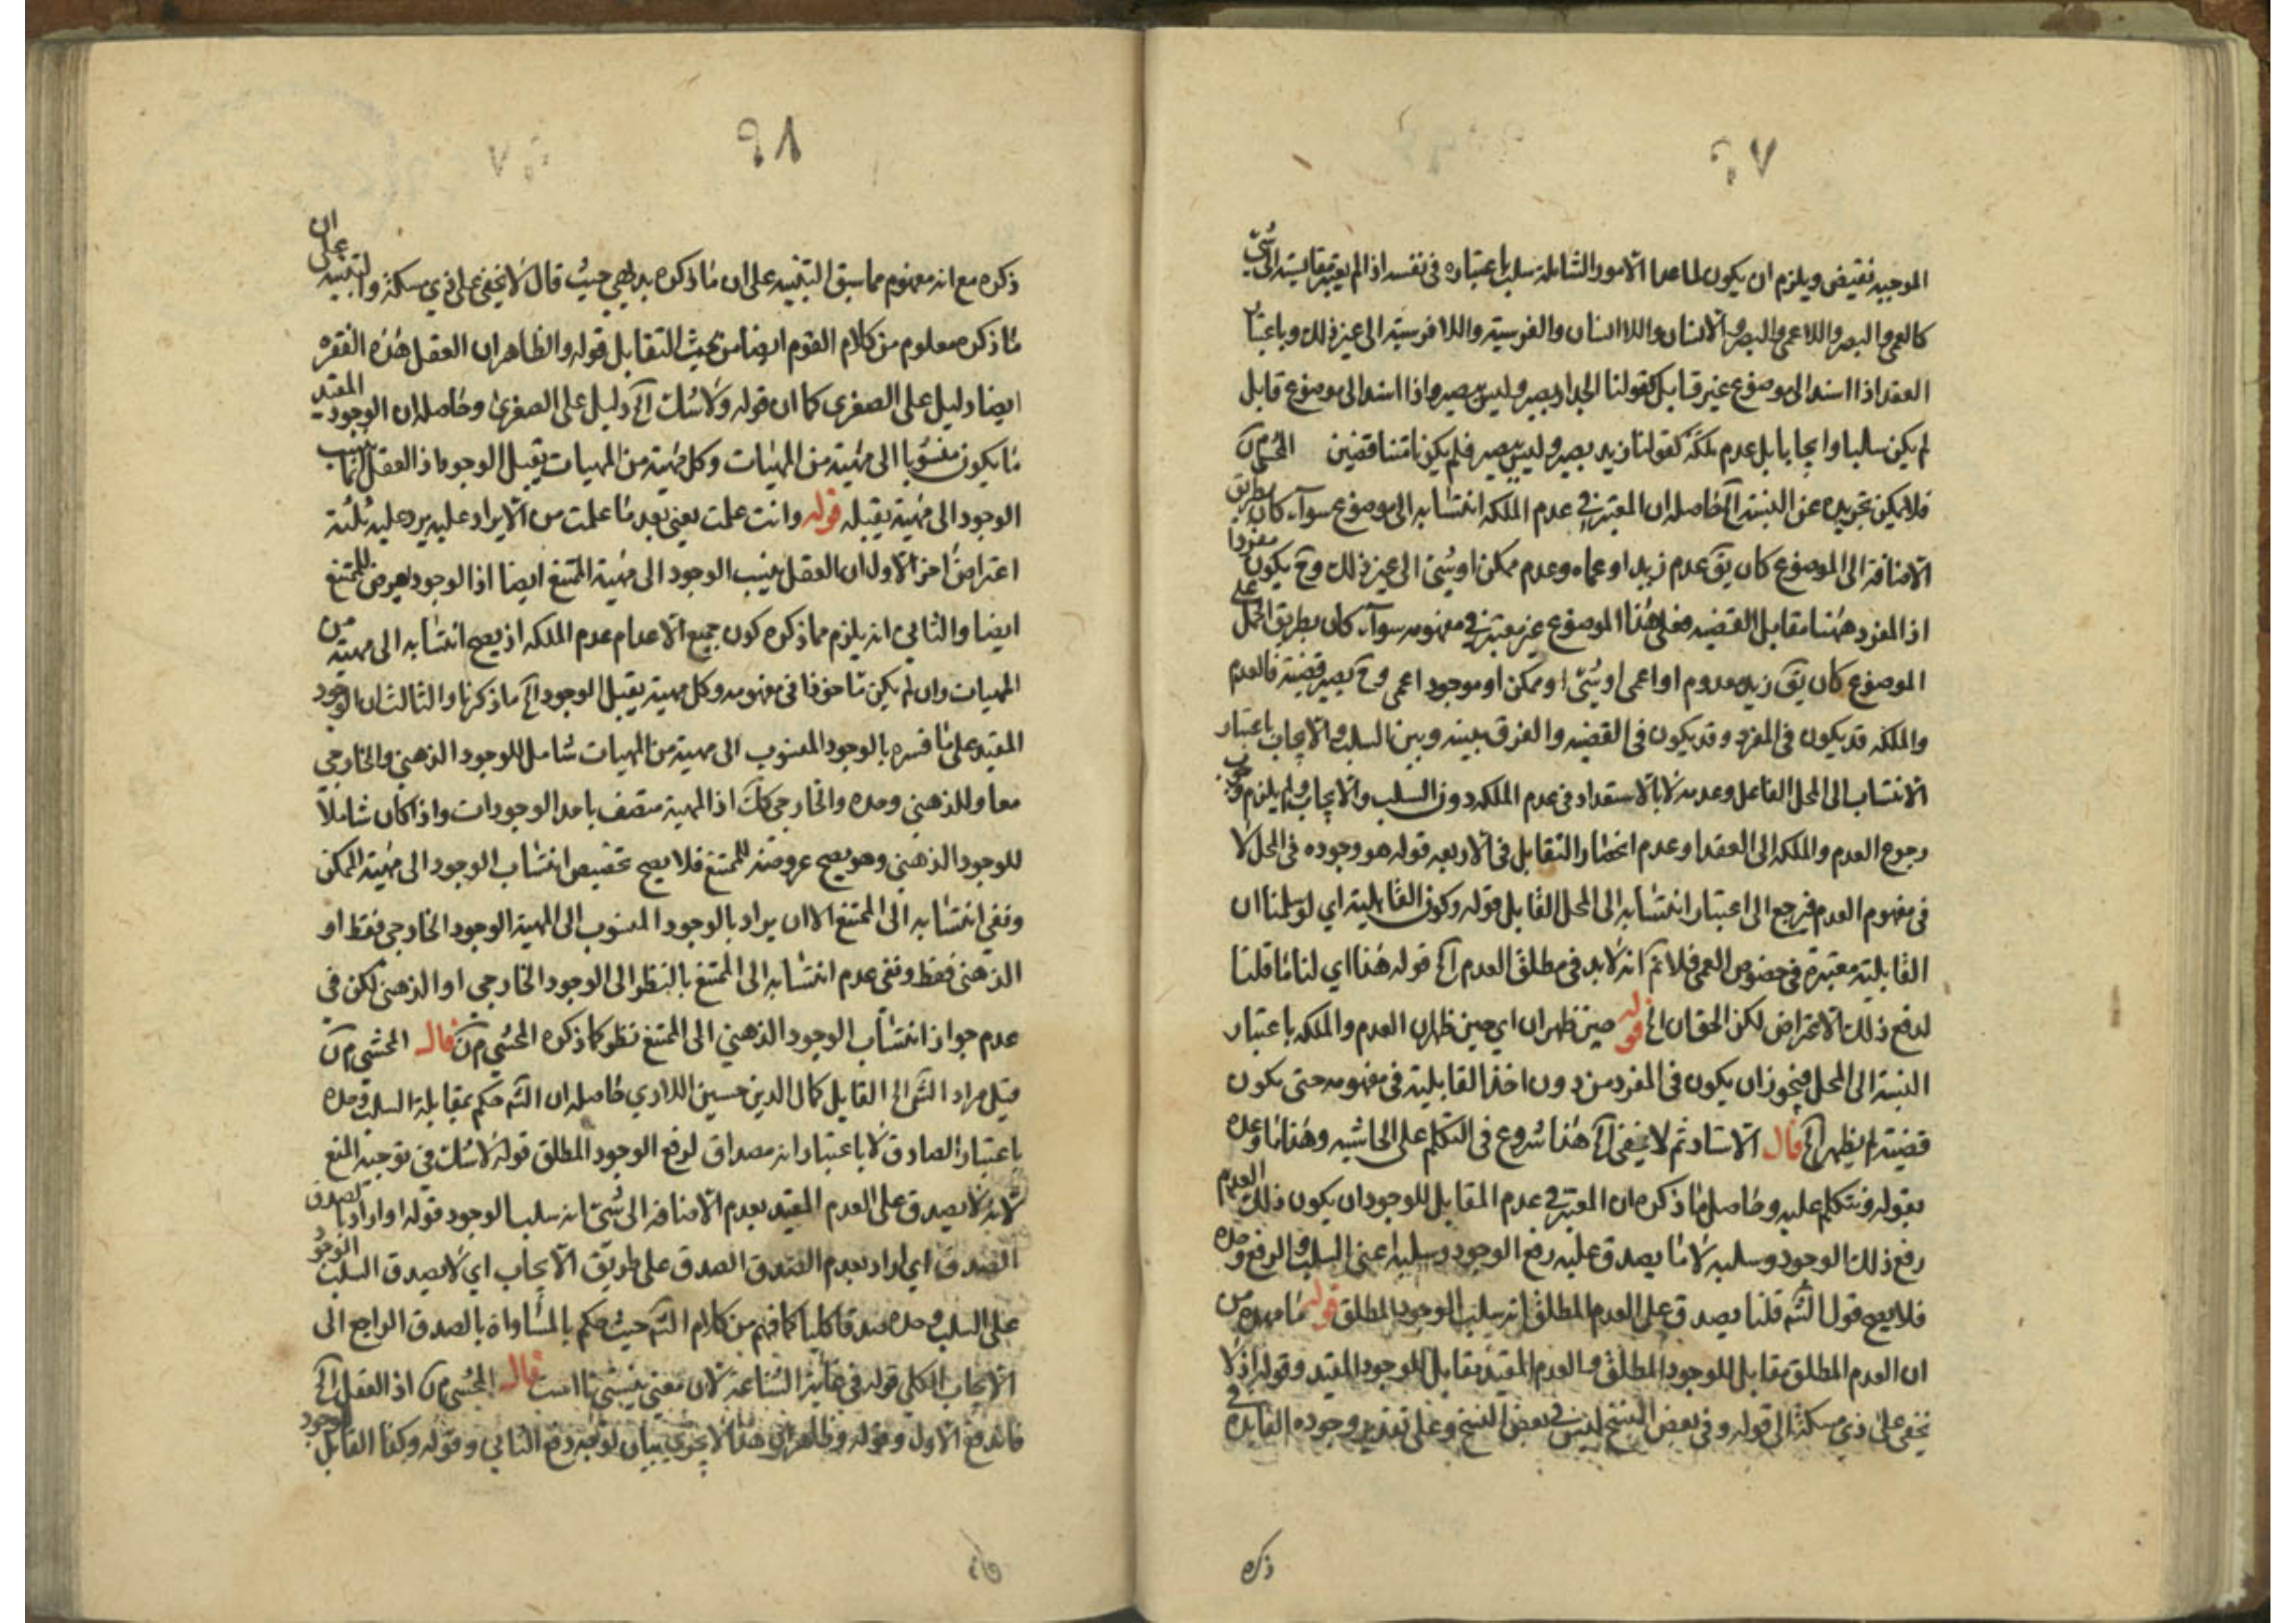 ٩٧
الموجبه نقيض ويلزم ان يكون لما عدا الامور الشاملة سلب باعتباره فى نفسه اذا لم يعتبر مقايسته الى شئ
كالعمى والبصر واللاعمى والبصر والانسان واللاانسان والفرسية واللافرسية الى غير ذلك وباعتبار
العقد اذا اسند الى موضوع غير قابل كقولنا الجدار بصير وليس ببصير واذا اسند الى موضوع قابل
لم يكن سالبا وايجابا بل عدم ملكة كقولنا زيد بصير وليس ببصير فلم يكونا متناقضين المحشى م ن
فلا يمكن تجريده عن النسبة آلخ حاصله ان المعتبر فى عدم الملكه انتسابه الى موضوع سوآء كان بطريق
الاضافة الى الموضوع كان يق عدم زيد او عماه وعدم ممكن او شئ الى غير ذلك وح يكون مفردا
اذ المفرد ههنا مقابل القضيه فعلى هذا الموضوع غير معتبر فى مفهومه سوآء كان بطريق الحمل على
الموضوع كان يق زيد معدوم او اعمى او شئ او ممكن او موجود اعمى وح يصير قضية فالعدم
والملكه قد يكون فى المفرد وقد يكون فى القضيه والفرق بينه وبين السلب والايجاب باعتبار
الانتساب الى المحل القابل وعدمه لا بالاستعداد فى عدم الملكه دون السلب والايجاب ولم يلزم وجوب
رجوع العدم والملكه الى العقد او عدم انحصار التقابل فى الاربعه قوله هو وجوده فى المحل لا
فى مفهوم العدم فيرجع الى اعتبار انتسابه الى المحل القابل قوله وكون القابلية اى لو سلمنا ان
القابلية معتبرة فى خصوص العمى فلا نم انه لابد فى مطلق العدم آلخ قوله هذا اى لنا ما قلنا
لدفع ذلك الاعتراض لكن الحق ان آلخ قوله حين ظهر ان اى حين ظهر ان العدم والملكه باعتبار
النسبة الى المحل فيجوز ان يكون فى المفرد من دون اخذ القابلية فى مفهومه حتى يكون
قضية لم يظهر آلخ قال الاستاد ثم لا يخفى آلخ هذا شروع فى التكلم على الحاشيه وهذا ما وعده
بقوله ونتكلم عليه وحاصل ما ذكره ان المعتبر فى عدم المقابل للوجود ان يكون ذلك العدم
رفع ذلك الوجود وسلبه لا ما يصدق عليه رفع الوجود وسلبه اعنى السلب والرفع وحده
فلا يصح قول الشم قلنا يصدق على العدم المطلق انه سلب الوجود المطلق قوله ما مهده من
ان العدم المطلق مقابل للوجود المطلق والعدم المقيد مقابل للوجود المقيد وقوله اذ لا
يخفى على ذى مسكة الى قوله وفى بعض النسخ ليس فى بعض النسخ وعلى تقدير وجوده الفايدة فى
ذكره
٩٨
ذكره مع انه مفهوم مما سبق التنبيه على ان ما ذكره بديهى حيث قال لا يخفى على ذى مسكة والتنبيه على ان
ما ذكره معلوم من كلام القوم ايضا من بحث التقابل قوله والظاهر ان العقل هذه الفقره
ايضا دليل على الصغرى كما ان قوله ولا شك آلخ دليل على الصغرى وحاصله ان الوجود المقيد
ما يكون منسوبا الى مهية من المهيات وكل مهية من المهيات يقبل الوجود اذ العقل انما ينسب
الوجود الى مهية يقبله قوله وانت علمت يعنى بعد ما علمت من الايراد عليه يرد عليه ثلثة
اعتراض اخر الاول ان العقل ينسب الوجود الى مهية الممتنع ايضا اذ الوجود يعرض للممتنع
ايضا والثانى انه يلزم مما ذكره كون جميع الاعدام عدم الملكه اذ يصح انتسابه الى مهية من
المهيات وان لم يكن ماخوذا فى مفهومه وكل مهية يقبل الوجود آلخ ما ذكرنا والثالث ان الوجود
المقيد على ما فسره بالوجود المنسوب الى مهية من المهيات شامل للوجود الذهنى والخارجى
معا وللذهنى وحده والخارجى كك اذ المهية متصف باحد الوجودات واذا كان شاملا
للوجود الذهنى وهو يصح عروضه للممتنع فلا يصح تخصيص انتساب الوجود الى مهية الممكن
ونفى انتسابه الى الممتنع الا ان يراد بالوجود المنسوب الى المهية الوجود الخارجى فقط او
الذهنى فقط ونفى عدم انتسابه الى الممتنع بالنظر الى الوجود الخارجى او الذهنى لكن فى
عدم جواز انتساب الوجود الذهنى الى الممتنع نظر كما ذكره المحشى م ن قال المحشى م ن
قيل مراد الشم آلخ القايل كمال الدين حسين اللارى حاصله ان الشم حكم بمقابلة السلب وحده
باعتبار الصادق لا باعتبار انه مصداق لرفع الوجود المطلق قوله لا شك فى توجيه المنع
لانه لا يصدق على العدم المقيد بعدم الاضافة الى شئ انه سلب الوجود قوله او اراد بالصدق
الصدق اى اراد بعدم الصدق الصدق على طريق الايجاب اى لا يصدق السلب الوجود
على السلب وحده صدقا كليا كما فهم من كلام الشم حيث حكم بالمساواة بالصدق الراجع الى
الايجاب الكلى قوله فى غاية الشناعة لان معنى قال المحشى م ن اذ العقل آلخ
فاندفع الاول وقوله وظاهر ان هذا لا يجرى بيان لوجه دفع الثانى وقوله وكذا القابل الوجود